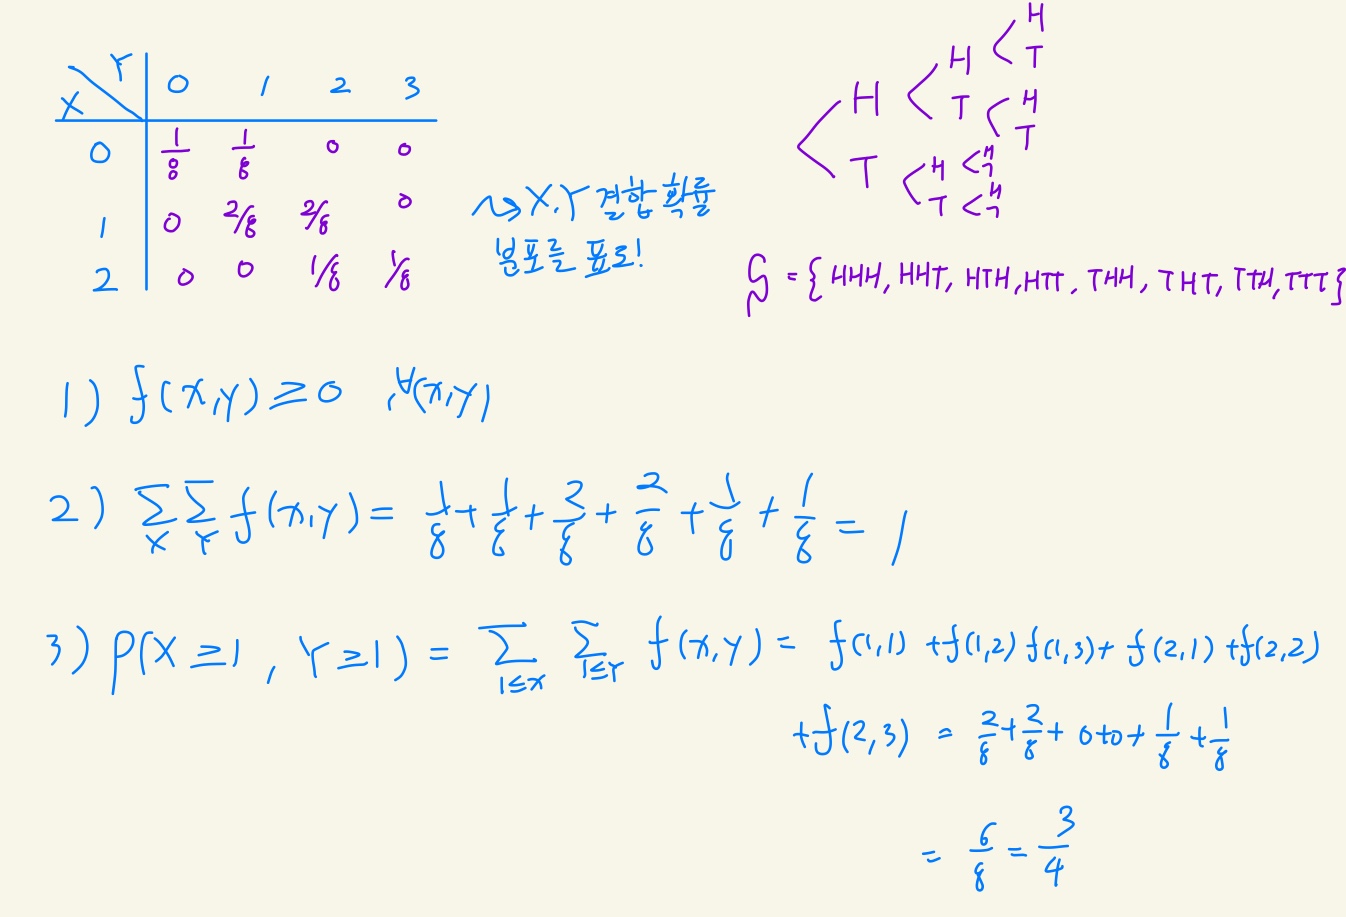 X \ Y | 0 1 2 3
0 | 1/8 1/8 0 0
1 | 0 2/8 2/8 0
2 | 0 0 1/8 1/8
⤳ X, Y 결합 확률
분포를 표로!
H < H < H T
T < H T
T < H < H T
T < H T
S = { HHH, HHT, HTH, HTT, THH, THT, TTH, TTT }
1) f(x,y) ≥ 0 , ∀(x,y)
2) Σ_X Σ_Y f(x,y) = 1/8 + 1/8 + 2/8 + 2/8 + 1/8 + 1/8 = 1
3) P(X ≥ 1 , Y ≥ 1) = Σ_{1≤X} Σ_{1≤Y} f(x,y) = f(1,1) + f(1,2) f(1,3) + f(2,1) + f(2,2)
+ f(2,3) = 2/8 + 2/8 + 0 + 0 + 1/8 + 1/8
= 6/8 = 3/4